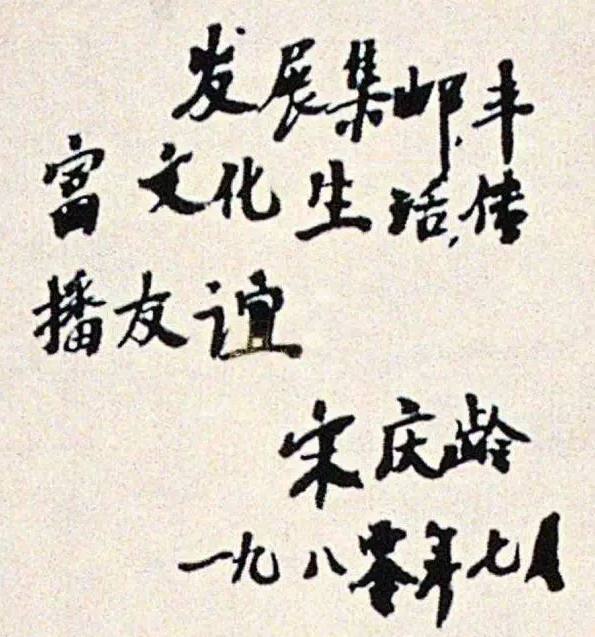 发展集邮，丰
富文化生活，传
播友谊
宋庆龄
一九八零年七月